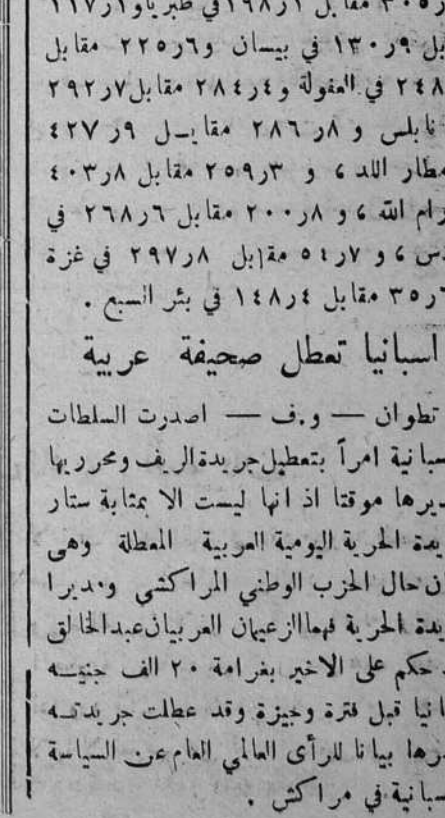 مقابل ١ر١٩٨ في طبريا و١ر١١٧
٩ر١٣٠ في بيسان و٦ر٢٢٥ مقابل
٢٤٨ في العفولة و٤ر٢٨٤ مقابل ٧ر٢٩٢
نابلس و ٨ر٢٨٦ مقابل ٩ر٤٢٧
مطار اللد ، و ٣ر٢٥٩ مقابل ٨ر٤٠٣
رام الله ، و ٨ر٢٠٠ مقابل ٦ر٢٦٨ في
س ، و ٧ر٥٤ مقابل ٨ر٢٩٧ في غزة
٦ر٣٥ مقابل ٤ر١٤٨ في بئر السبع .
اسبانيا تعطل صحيفة عربية
تطوان — و.ف — اصدرت السلطات
سبانية امراً بتعطيل جريدة الريف ومحرريها
ديرها موقتا اذ انها ليست الا بمثابة ستار
يدة الحرية اليومية العربية المعطلة وهى
ن حال الحزب الوطني المراكشي ومديرا
يدة الحرية فهما الزعيمان العربيان عبد الخالق
حكم على الاخير بغرامة ٢٠ الف جنيه
انيا قبل فترة وجيزة وقد عطلت جريدته
رها بيانا للرأى العالمي العام عن السياسة
سبانية في مراكش .